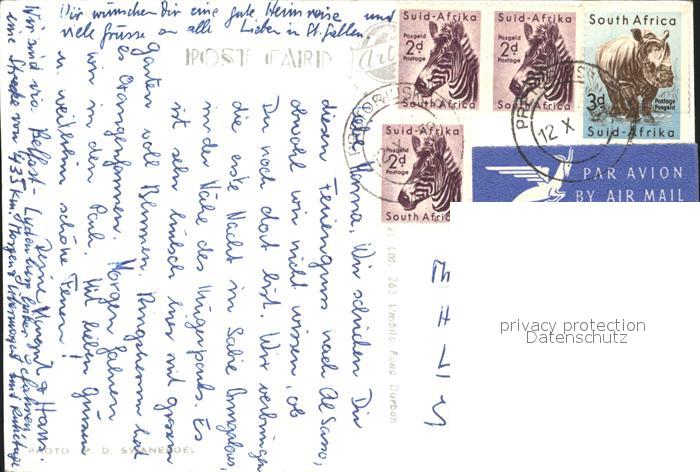 Wir wünschen Dir eine gute Heimreise und
viele Grüsse an alle Lieben in St. Gallen.
POST CARD
Art
Suid-Afrika
Posgeld
2d
Postage
South Africa
Suid-Afrika
Posgeld
2d
Postage
South Africa
South Africa
3d
Posgeld
Postage
Suid-Afrika
Suid-Afrika
Posgeld
2d
Postage
South Africa
12 X
PAR AVION
BY AIR MAIL
Liebe Mamma, Wir schicken Dir
diesen Feriengruss nach Al Sasso,
obwohl wir nicht wissen, ob
Du noch dort bist. Wir verbringen
die erste Nacht in Sabie Bungalows,
in der Nähe des Krügerparks. Es
ist sehr hübsch hier mit grossem
Garten voll Blumen. Ringsherum hat
es Orangenfarmen. Morgen fahren
wir in den Park. Mit lieben Grüssen
u. weiterhin schöne Ferien!
Deine Margrit & Hans.
Wir sind via Belfast - Lydenburg gefahren
eine Strecke von 435 km
265 Umbilo Road Durban
PHOTO P. D. SWANEPOEL
privacy protection
Datenschutz